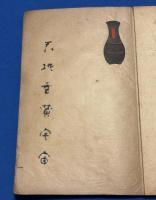 天地玄黃宇宙